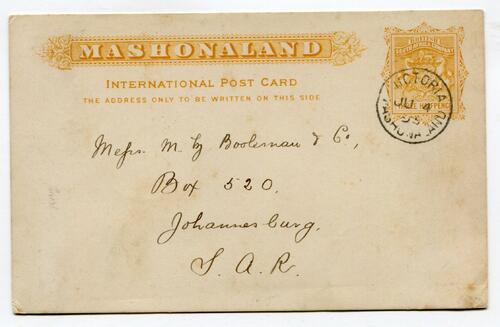 MASHONALAND
INTERNATIONAL POST CARD
THE ADDRESS ONLY TO BE WRITTEN ON THIS SIDE
BRITISH
SOUTH AFRICA COMPANY
VICTORIA
JU 4
95
MASHONALAND
Messrs. M. by Booleman & Co.,
Box 520.
Johannesburg.
S. A. R.